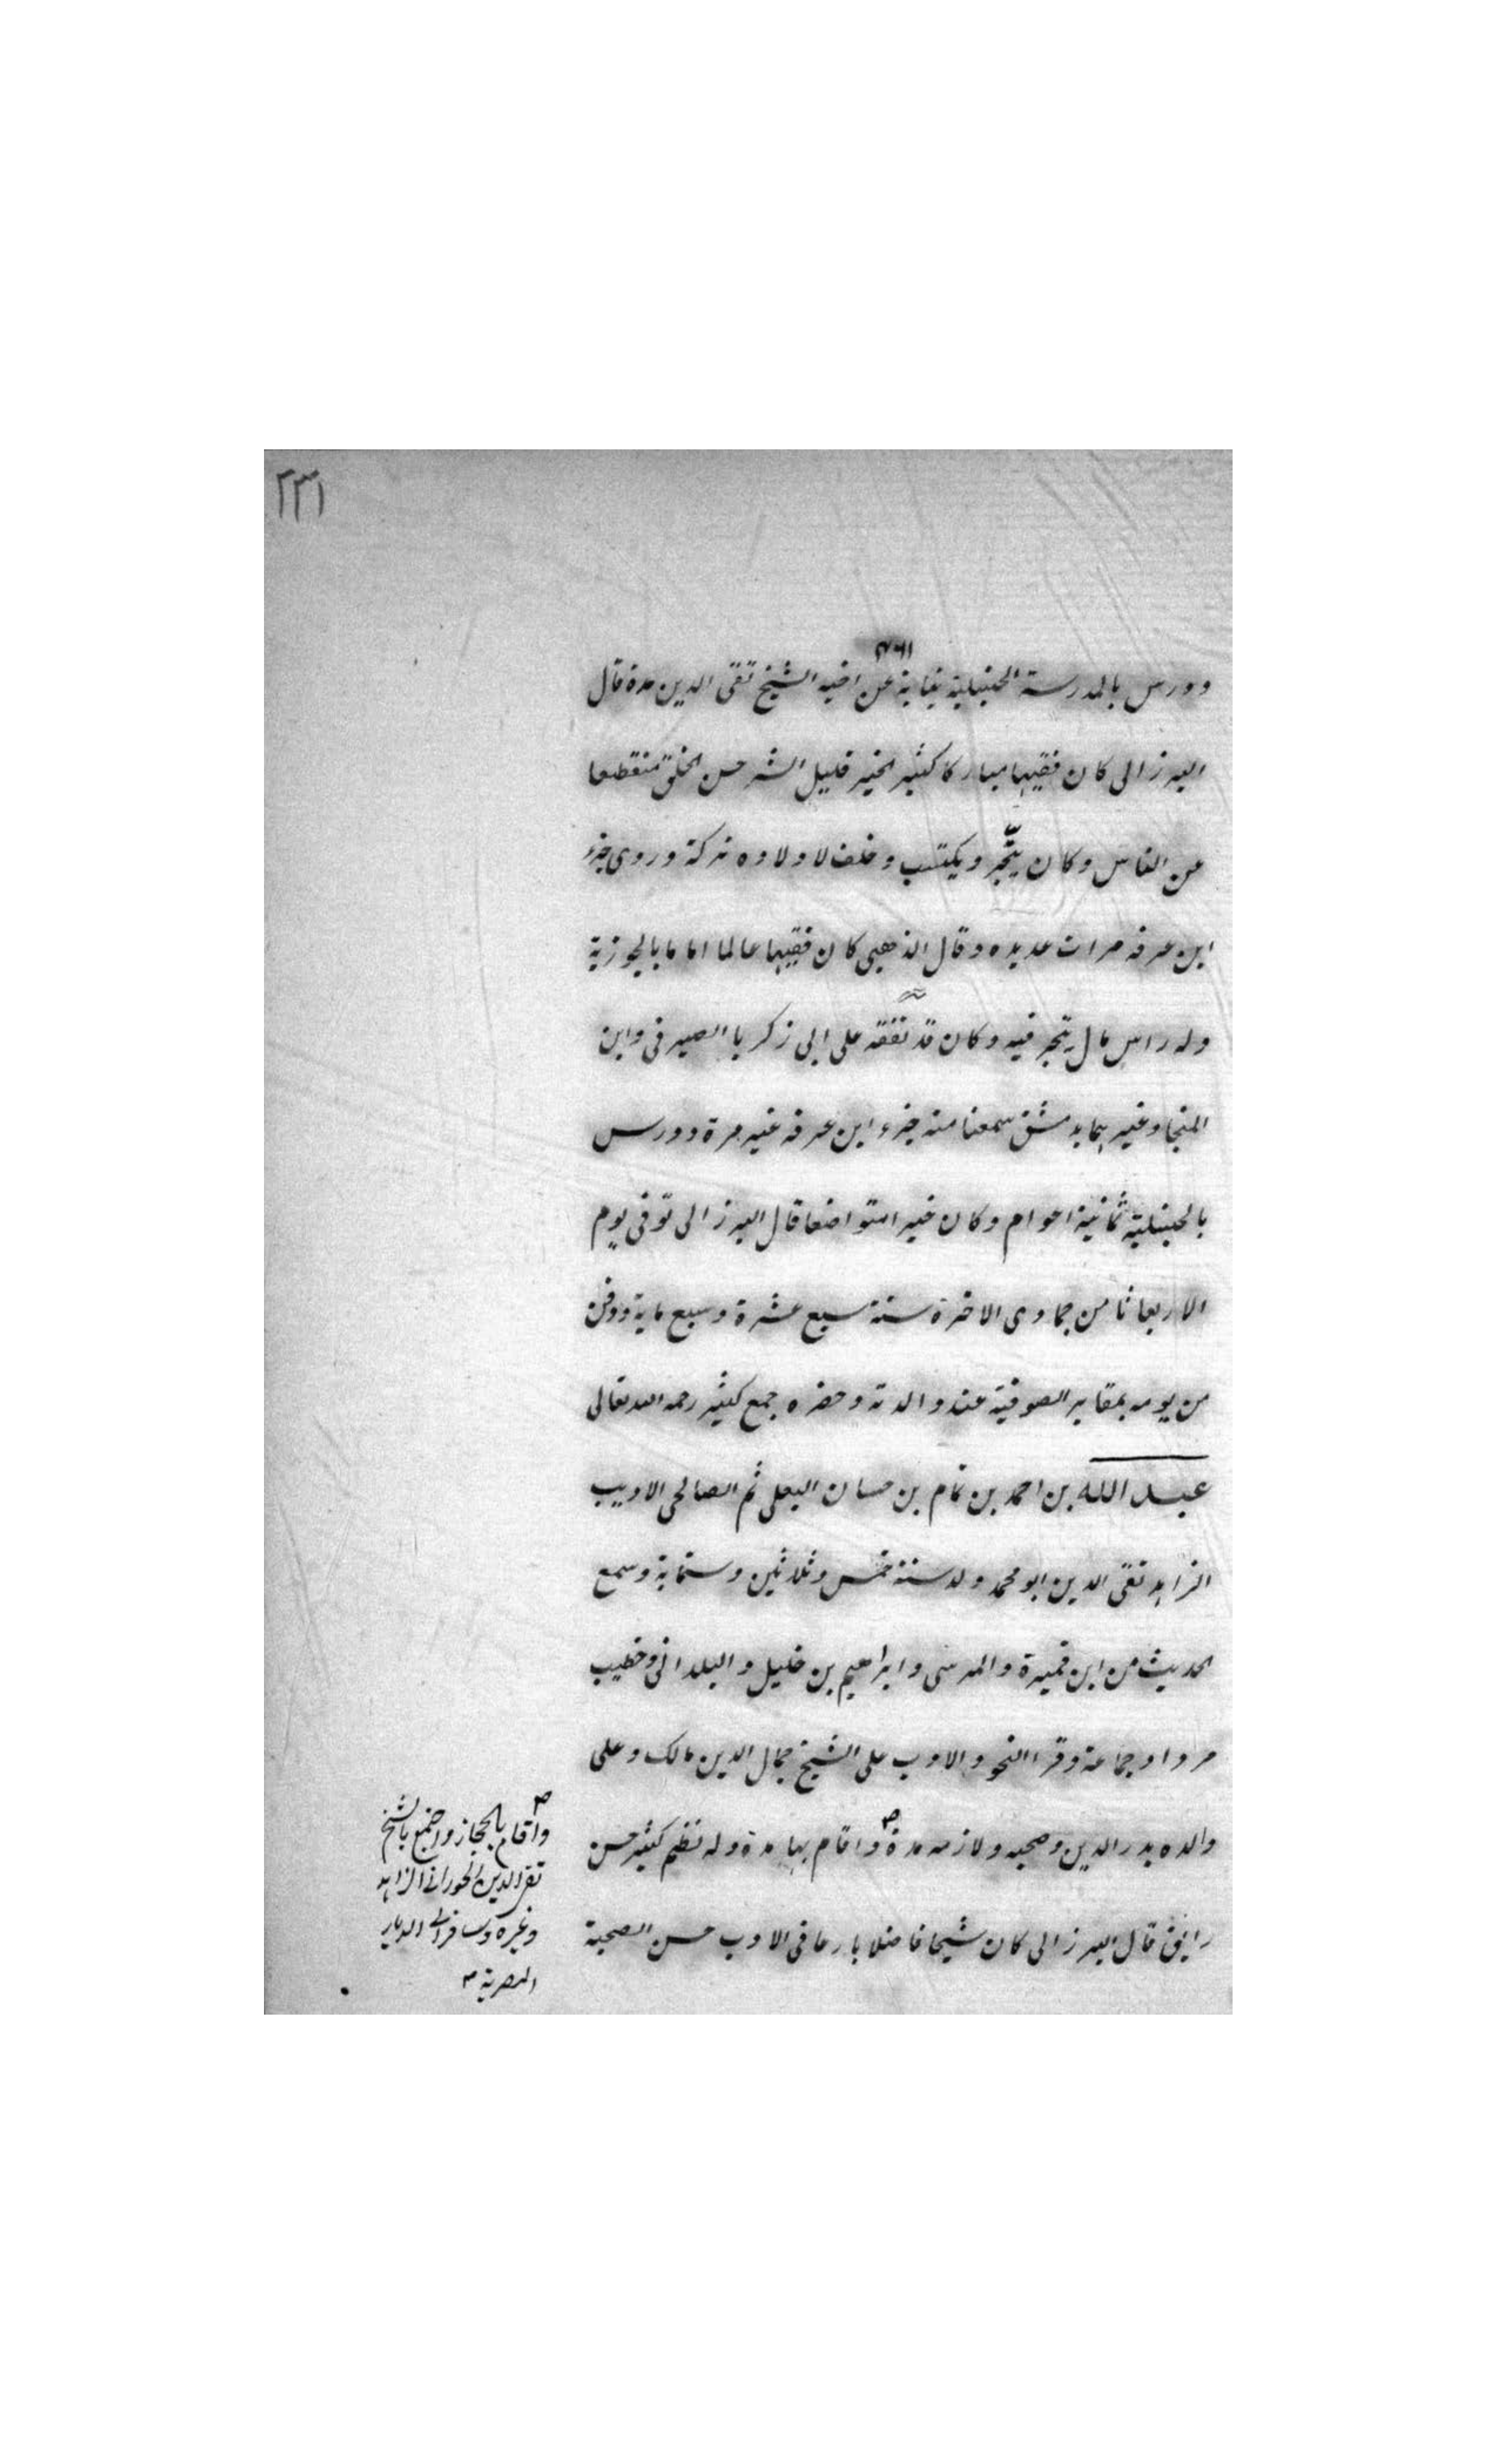 ٢٣١
ودرس بالمدرسة الحنبلية نيابة عن اخيه الشيخ تقى الدين مدة قال
البرزالى كان فقيها مباركا كثير الخير قليل الشر حسن الخلق منقطعا
عن الناس وكان يتّجر ويكتسب وخلف لاولاده تركة وروى جزء
ابن عرفه مرات عديده وقال الذهبى كان فقيها عالما اماما بالجوزية
وله راس مال يتجر فيه وكان قد تفقه على ابى زكريا الصيرفى وابن
المنجا وغيرهما بدمشق سمعنا منه جزء ابن عرفه غير مرة ودرس
بالحنبلية ثمانية اعوام وكان خيرا متواضعا قال البرزالى توفى يوم
الاربعا ثامن جمادى الاخرة سنة سبع عشرة وسبع ماية ودفن
من يومه بمقابر الصوفية عند والدته وحضره جمع كثير رحمه الله تعالى
عبد الله بن احمد بن تمام بن حسان البعلى ثم الصالحى الاديب
الزاهد تقى الدين ابو محمد ولد سنة خمس وثلاثين وستماية وسمع
الحديث من ابن قميرة والمرسى وابراهيم بن خليل والبلدانى وخطيب
مردا وجماعة وقرا النحو والادب على الشيخ جمال الدين مالك وعلى
والده بدر الدين وصحبه ولازمه مدة واقام بها مدة وله نظم كثير حسن
رايق قال البرزالى كان شيخا فاضلا بارعا فى الادب حسن الصحبة
واقام بالحجاز واجتمع بالشيخ
تقى الدين الحورانى الزاهد
وغيره وسافر الى الديار
المصرية